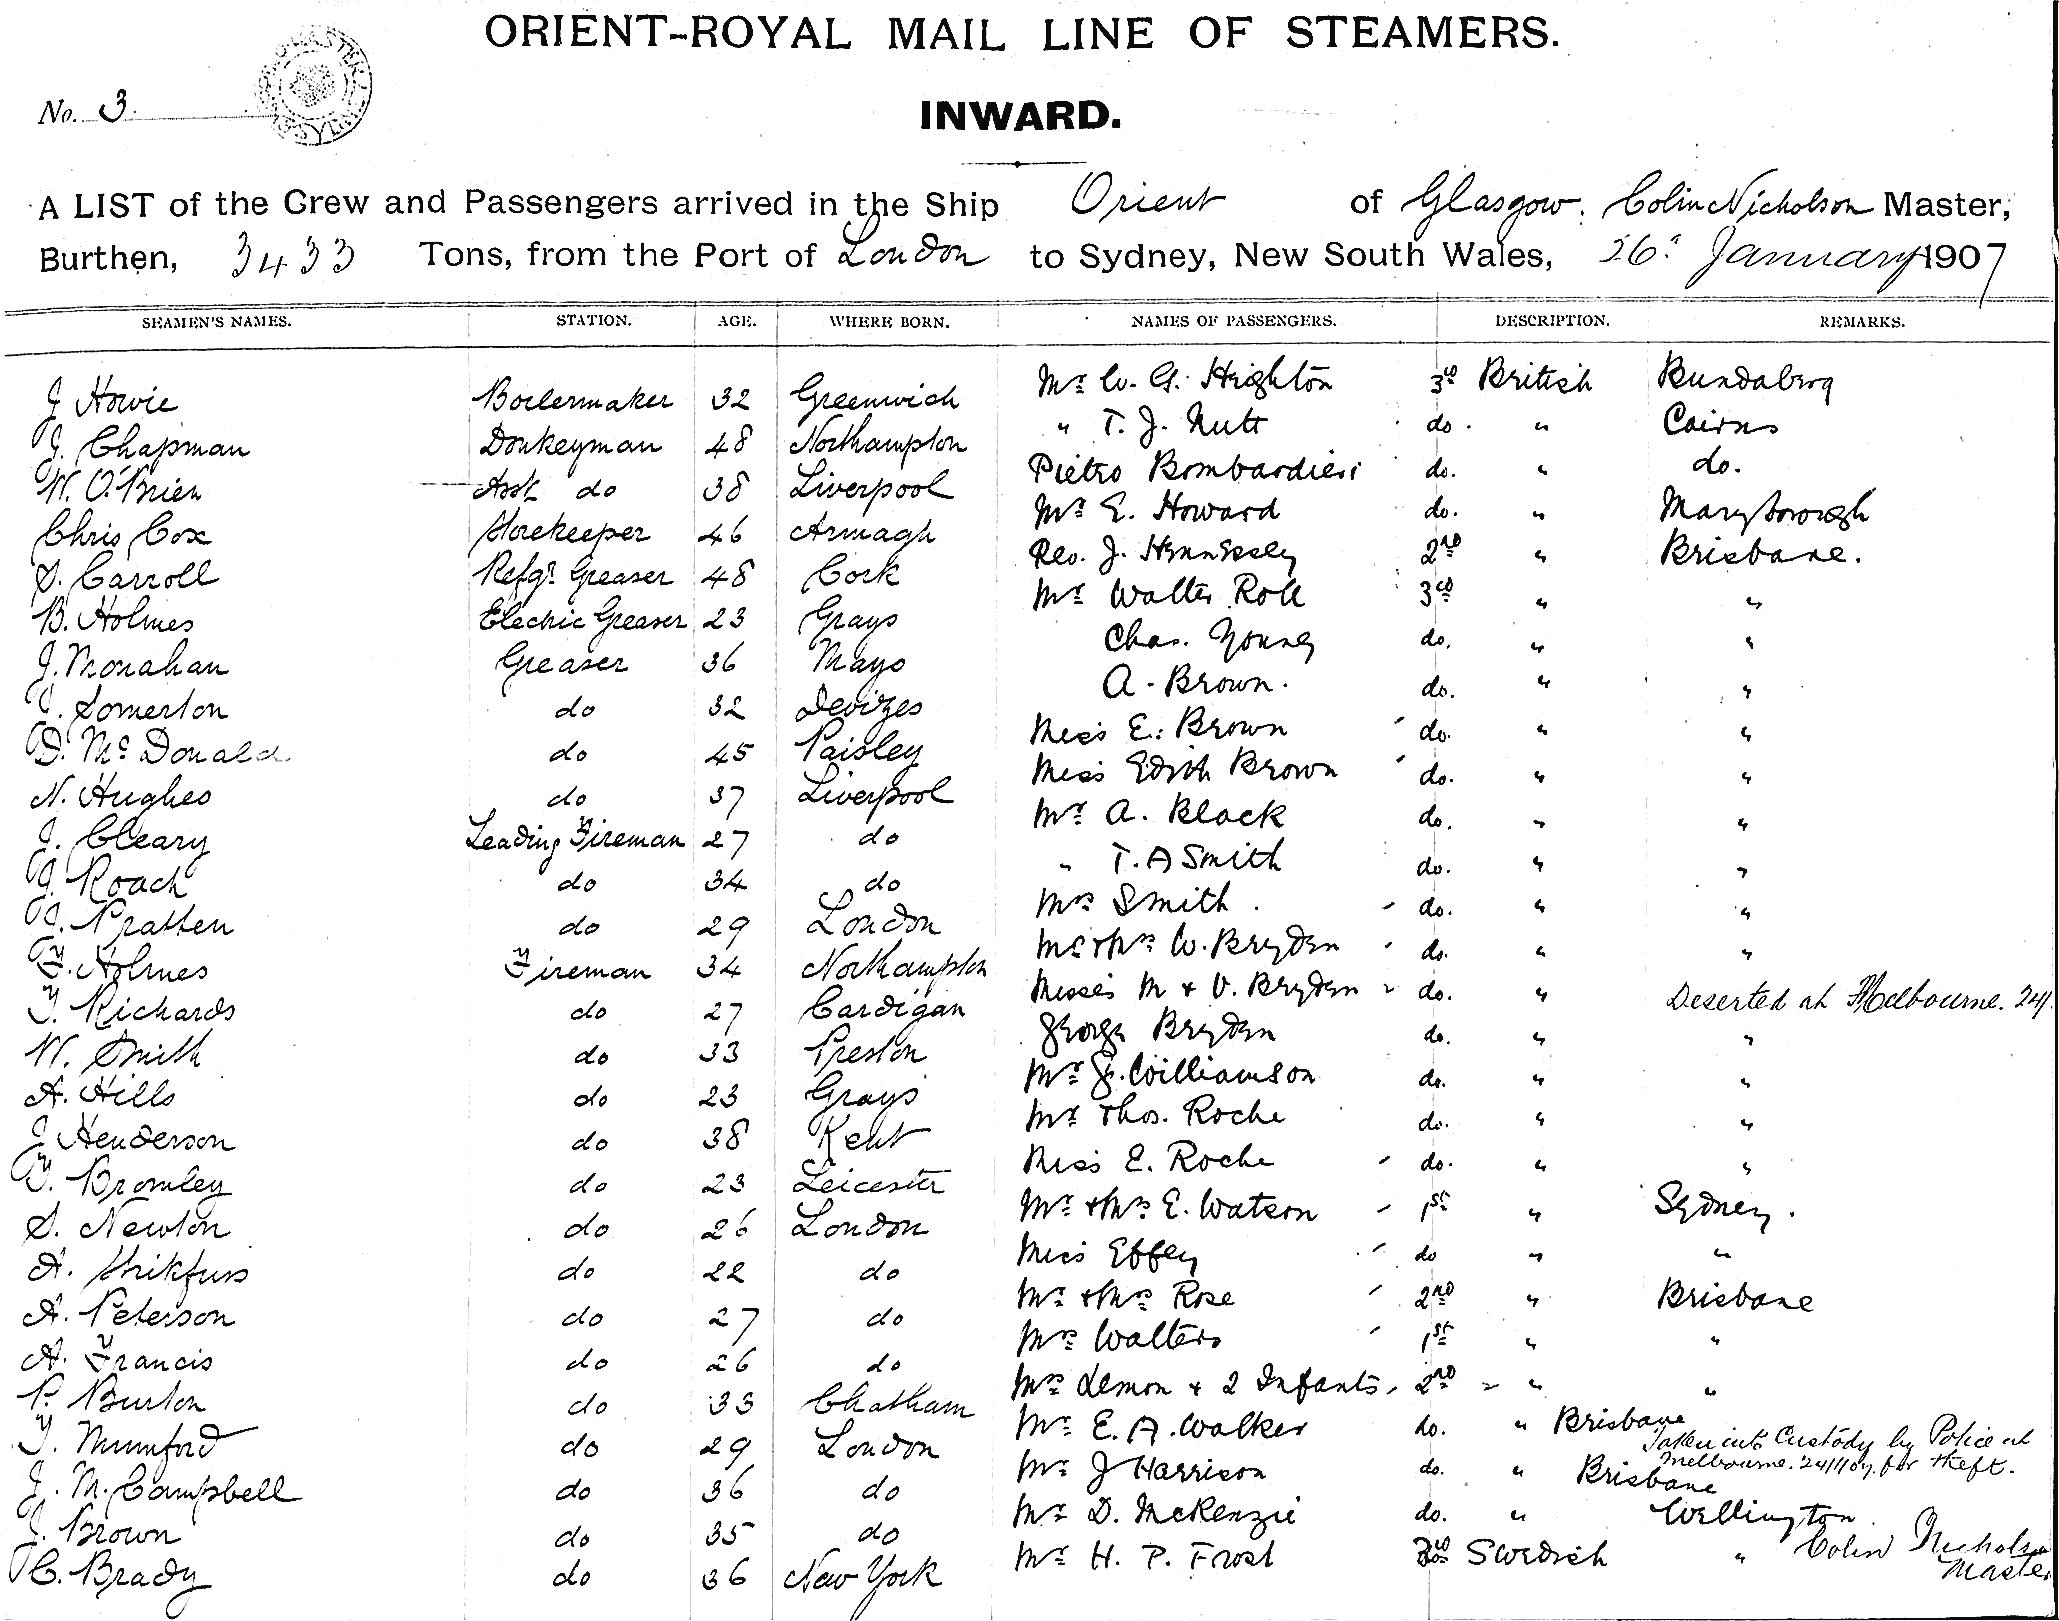 ORIENT-ROYAL MAIL LINE OF STEAMERS.
No. 3
INWARD.
A LIST of the Crew and Passengers arrived in the Ship Orient of Glasgow. Colin Nicholson Master,
Burthen, 3433 Tons, from the Port of London to Sydney, New South Wales, 26. January 1907
SEAMEN'S NAMES. STATION. AGE. WHERE BORN. NAMES OF PASSENGERS. DESCRIPTION. REMARKS.
J Howie Boilermaker 32 Greenwich Mr W. G. Highton 3rd British Bundaberg
J. Chapman Donkeyman 48 Northampton " T. J. Nutt do. " Cairns
W. O'Brien Asst do 38 Liverpool Pietro Bombardieri do. " do.
Chris Cox Storekeeper 46 Armagh Mr E. Howard do. " Maryborough
S. Carroll Refgr. Greaser 48 Cork Rev. J. Hennessey 2nd " Brisbane.
B. Holmes Electric Greaser 23 Grays Mr Walter 3rd " "
J. Monahan Greaser 36 Mayo Chas. Young do. " "
Somerton do 32 Devizes A. Brown. do. " "
D. McDonald. do 45 Paisley Miss E. Brown do. " "
N. Hughes do 37 Liverpool Miss Edith Brown do. " "
J. Cleary Leading Fireman 27 do Mr A. Black do. " "
J. Roach do 34 do " T. A Smith do. " "
Pratten do 29 London Mrs Smith. do. " "
F. Holmes Fireman 34 Northampton Mr & Mrs W. Bryden do. " "
T. Richards do 27 Cardigan Misses M & V. Bryden do. " Deserted at Melbourne. 24/1
W. Smith do 33 Preston George Bryden do. " "
A. Hills do 23 Grays Mr J. Williamson do. " "
J Henderson do 38 Kent Mr Thos. Roche do. " "
T. Bromley do 23 Leicester Miss E. Roche do. " "
S. Newton do 26 London Mr & Mrs E. Watson 1st " Sydney.
A. do 22 do Miss Effey do " "
A. Peterson do 27 do Mr & Mrs Rose 2nd " Brisbane
A. Francis do 26 do Mrs Walters 1st " "
P. Burton do 33 Chatham Mrs Lemon & 2 Infants, 2nd " "
T. Mumford do 29 London Mr E. A. Walker do. " Brisbane
Taken into Custody by Police at
Melbourne. 24/1/07. for theft.
J. M. Campbell do 36 do Mr J Harrison do. " Brisbane
J. Brown do 35 do Mr D. McKenzie do. " Wellington.
C. Brady do 36 New York Mr H. P. Frost 3rd Swedish "
Colin Nicholson
Master